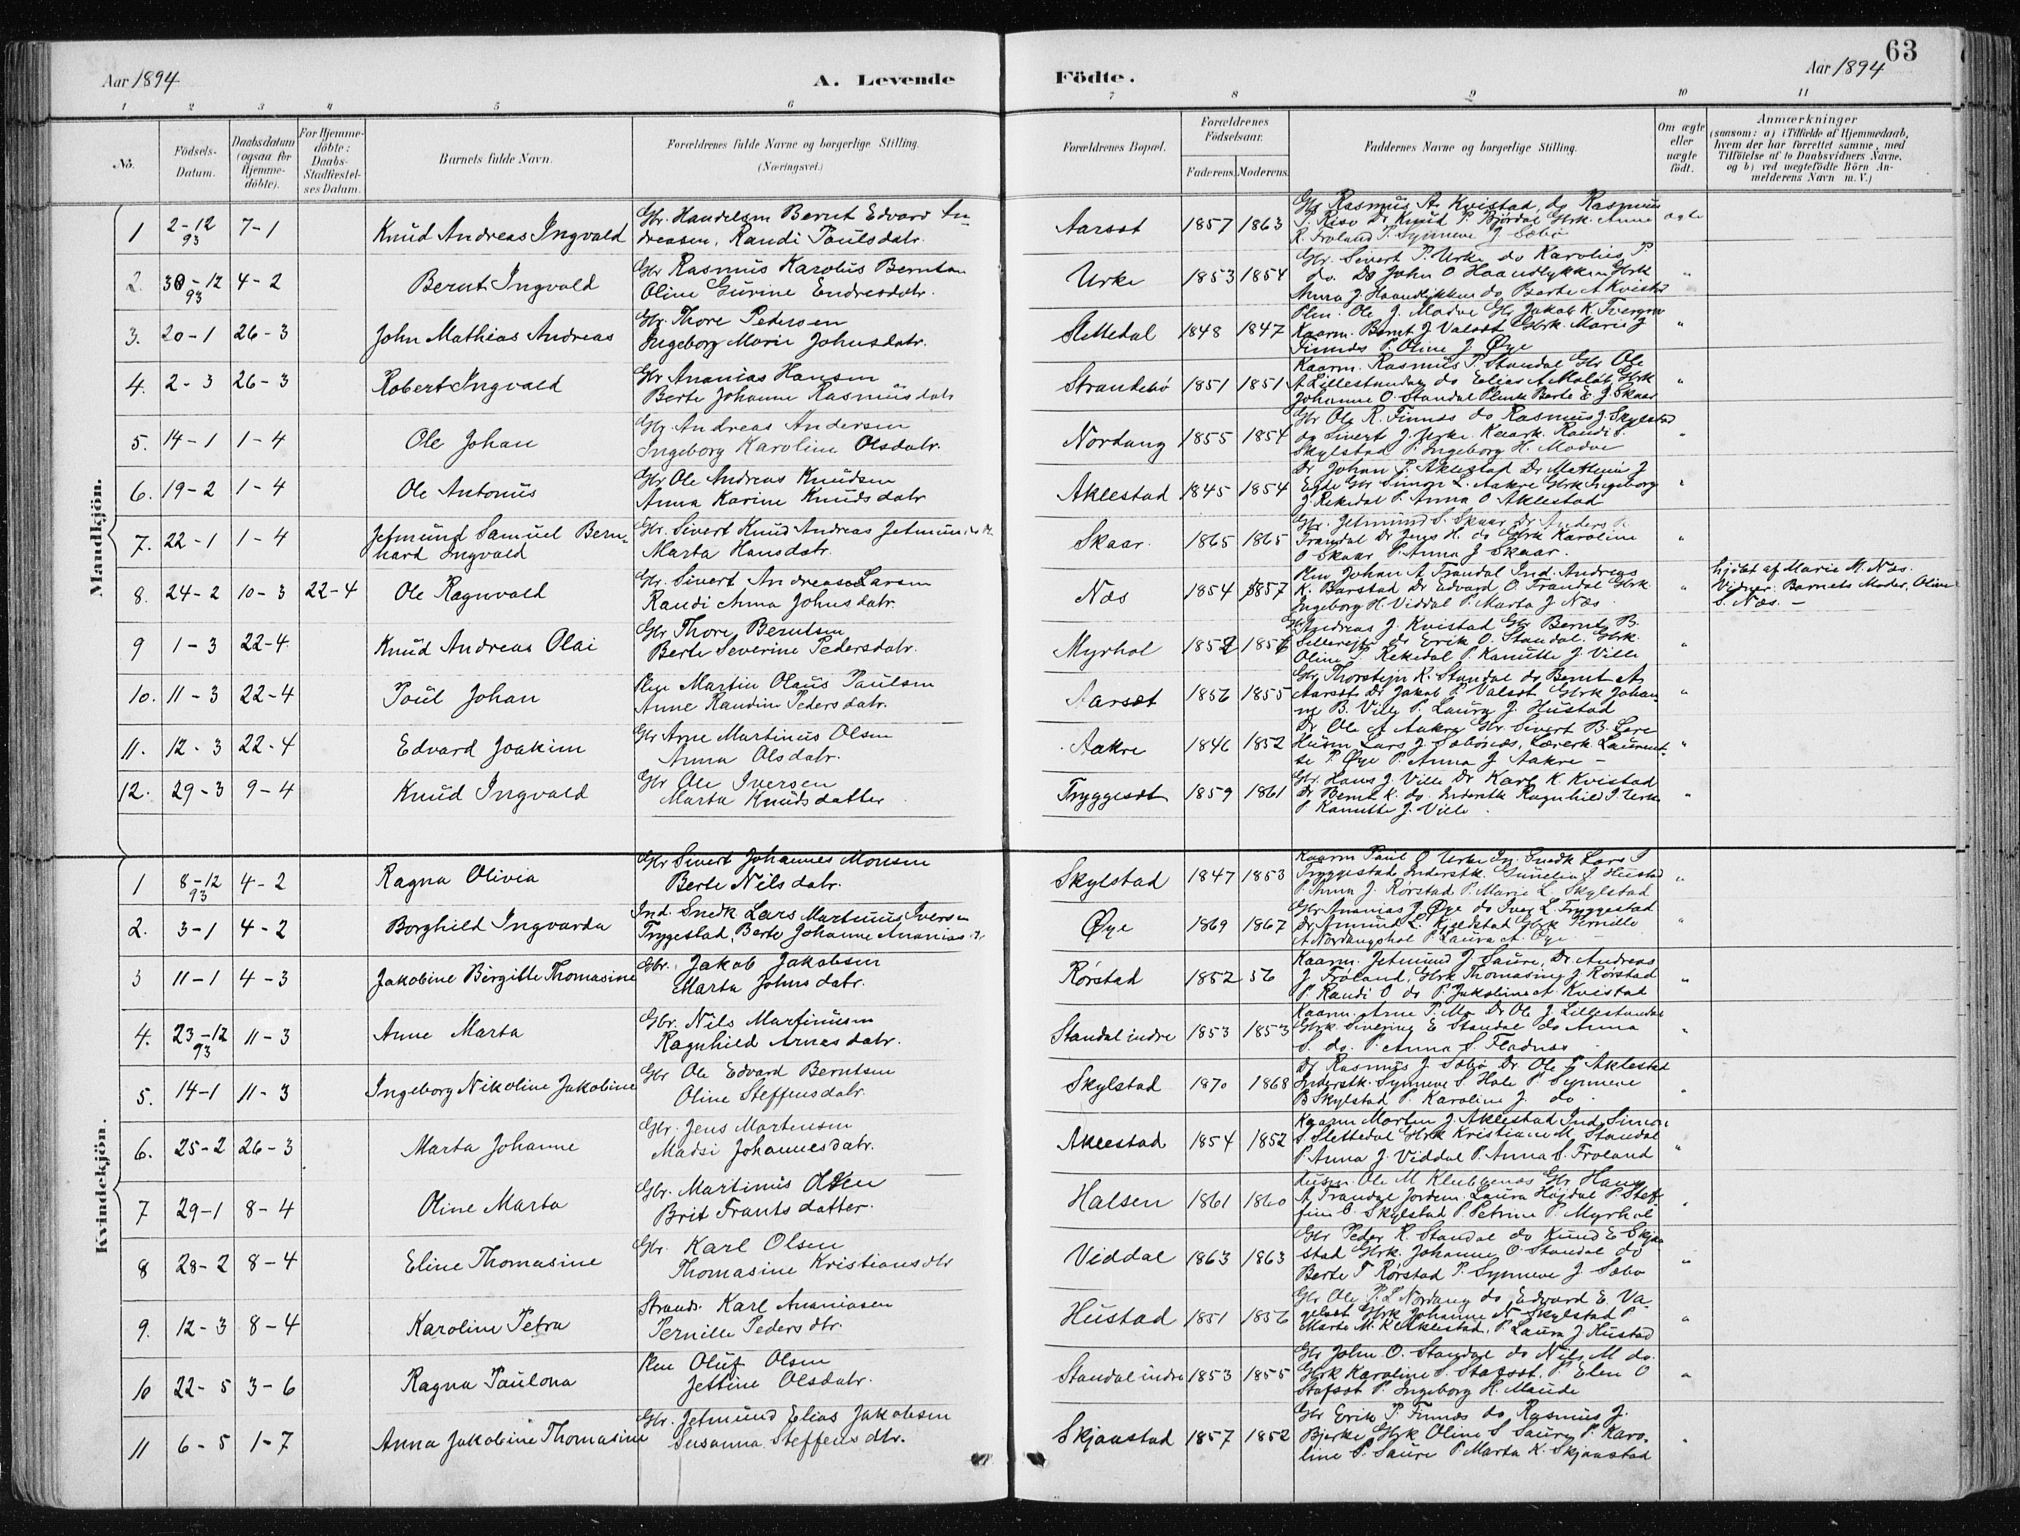 63
Aar 1894
A. Levende
Födte.
Aar 1894
1 2 3 4 5 6 7 8 9 10 11
No.
Födsels-
Datum.
Daabsdatum
(ogsaa for
Hjemme-
döbte).
For Hjemme-
döbte:
Daabs-
Stadfæstel-
ses Datum.
Barnets fulde Navn.
Forældrenes fulde Navne og borgerlige Stilling.
(Næringsvei.)
Forældrenes Bopæl.
Forældrenes
Födselsaar.
Faderens. Moderens.
Faddernes Navne og borgerlige Stilling.
Om ægte
eller
uægte
födt.
Anmærkninger
(saasom: a) i Tilfælde af Hjemmedaab,
hvem der har forrettet samme, med
Tilföielse af to Daabsvidners Navne,
og b) ved uægtefödte Börn An-
melderens Navn m. V.)
Mandkjön.
1 2-12 93 7-1 Knud Andreas Ingvald
Gbr. Handelsm Bernt Edvard An-
dreasen, Randi Paulsdatr.
Aarset 1857 1863
Gbr Rasmus A. Kvistad, do Rasmus
P. Riso Dr Knud P. Bjørdal Gbrk. Anne
R. Froland P. Synneve J. Sæbø
ægte
2. 30-12 93 4-2 Bernt Ingvald
Gbr Rasmus Karolus Berntsen
Oline Gurine Endresdatr.
Urke 1853 1854
Gbr. Sivert P. Urke do Karolus P.
do. Dr John O Haandlykken Gbrk
Anna J. Haandlykken do Berte A Kvistad
"
3. 20-1 26-3 John Mathias Andreas
Gbr. Thore Pedersen
Ingeborg Marie Johnsdatr.
Slettedal 1848 1847
Plm. Ole J. Madve Gbr Jakob K.
Kaarm. Bernt J Valset Gbrk. Marie J
Finnes P. Oline J. Øye
"
4. 2-3 26-3 Robert Ingvald
Gbr Ananias Hansen
Berte Johanne Rasmusdatr
Strandebø 1851 1851
Kaarm. Rasmus P. Standal Gbr Ole
A Lillestandal do Elias A Gbrk
Johanne O. Standal Berte E. J. Skaar
"
5. 14-1 1-4 Ole Johan
Gbr. Andreas Andersen
Ingeborg Karoline Olsdatr.
Nordang 1855 1854
Gbr Ole R. Finnes do Rasmus J. Skylstad
do Sivert J. Urke. Kaark. Randi S.
Skylstad P. Ingeborg H. Madve
"
6. 19-2 1-4 Ole Antonius
Gbr Ole Andreas Knudsen
Anna Karine Knudsdatr.
Aklestad 1845 1854
Dr Johan P. Aklestad Dr Mathias J
Gbr Simon L. Aakre Gbrk Ingeborg
J. Rekedal P. Anna O Aklestad
"
7. 22-1 1-4 Jetmund Samuel Bern-
hard Ingvald
Gbr. Sivert Knud Andreas
Marta Hansdatr.
Skaar. 1865 1865
Gbr. Jetmund S. Skaar Dr Anders
Trandal Dr Jens H. do Gbrk Karoline
O Skaar P. Anna J Skaar.
"
8. 24-2 10-3 22-4 Ole Ragnvald
Gbr. Sivert Andreas Larsen
Randi Anna Johnsdatr.
Næs 1854 1857
Plm Johan A Trandal Ind. Andreas
K. Barstad Dr Edvard O. Trandal Gbrk
Ingeborg H. Viddal P. Marta J Næs.
"
hjdøbt af Marie M. Næs.
Vidner: Barnets Moder, Oline
S. Næs. -
9 1-3 22-4 Knud Andreas Olai
Gbr Thore Berntsen
Berte Severine Pedersdatr.
Myrhol 1857 1856
Gbr Andreas J. Kvistad Gbr Bernt B.
do Erik O. Standal. Gbrk.
Oline P. Rekedal P. Kanutte J. Ville
"
10. 11-3 22-4 Poul Johan
Plm Martin Olaus Paulsen
Anne Randine Pedersdatr.
Aarset 1856 1855
Gbr Thorstejn K. Standal do Bernt A
Aarset Dr Jakob P. Valset Gbrk Johan-
ne B. Ville P. Laura J. Hustad
"
11. 12-3 22-4 Edvard Joakim
Gbr Arne Martinus Olsen
Anna Olsdatr.
Aakre 1846 1852
Dr Ole A Aakre Gbr Sivert B.
Husm Lars J. Lærerk. Laurent-
se P. Øye P. Anna J Aakre -
"
12. 29-3 9-4 Knud Ingvald
Gbr Ole Iversen
Marta Knudsdatter
Tryggeset 1859 1861
Gbr. Hans J. Ville Dr Karl K. Kvistad
Dr Bernt K. do. Inderstk Ragnhild J. Urke
P Kanutte J. Ville.
"
Kvindekjön.
1 8-12 93 4-2 Ragna Olivia
Gbr Sivert Johannes Monsen
Berte Nilsdatr.
Skylstad 1847 1853
Kaarm Paul O Urke In. Snedk Lars I
Tryggestad Inderstk. Gunelia J Hustad
P. Anna J. Rørstad P. Marie L. Skylstad
"
2. 3-1 4-2 Borghild Ingvarda
Ind. Snedk Lars Martinus Iversen
Tryggestad, Berte Johanne Ananias
Øye 1869 1867
Gbr Ananias J. Øye do Iver L. Tryggestad
Dr Amund L. Kjeldstad Gbrk Pernille
A Nordangshol P. Laura A. Øye
"
3 11-1 4-3 Jakobine Birgitte Thomasine
Gbr. Jakob Jakobsen
Marta Johnsdatr.
Rørstad 1852 56
Kaarm. Jetmund J Saure, Dr. Andreas
J. Froland, Gbrk Thomasine J. Rørstad
P. Randi O do P. Jakobine A. Kvistad
"
4. 23-12 93 11-3 Anne Marta
Gbr. Nils Martinusen
Ragnhild Arnesdatr.
Standal indre 1853 1853
Kaarm. Arne P. Mo Dr Ole J. Lillestandal
Gbrk E Standal do Anna
S. do. P. Anna S. Fladnæs
"
5. 14-1 11-3 Ingeborg Nikoline Jakobine
Gbr Ole Edvard Berntsen
Oline Steffensdatr.
Skylstad 1870 1868
Dr Rasmus J Sæbø Dr Ole P. Aklestad
Inderstk. Synneve S Hole P Synneve
B Skylstad P. Karoline J. do
"
6. 25-2 26-3 Marta Johanne
Gbr. Jens Martensen
Madsi Johannesdatr.
Aklestad 1854 1852
Kaarm Morten J. Aklestad Ind. Simon
S. Slettedal Gbrk Kristiane M. Standal
P. Anna J. Viddal P. Anna S. Froland
"
7 29-1 8-4 Oline Marta
Gbr. Martinus Olsen
Brit Frantsdatter.
Halsen 1861 1860
Husm. Ole M Klubbenes Gbr Hans
A Trandal Jordem. Laura Højdal P. Stef-
fine O. Skylstad P. Petrine P. Myrhol
"
8 28-2 8-4 Eline Thomasine
Gbr. Karl Olsen
Thomasine Kristiansdtr
Viddal 1863 1863
Gbr Peder R. Standal do Knud E Skjaa-
stad Gbrk. Johanne O. Standal do
Berte T Rørstad P. Synneve J. Sæbø
"
9. 12-3 8-4 Karoline Petra
Strands. Karl Ananiasen
Pernille Pedersdtr.
Hustad 1851 1856
Gbr Ole P. L Nordang do Edvard E. Va-
Gbrk Johanne N Skylstad P
Marte M. K Aklestad, P. Laura J. Hustad
"
10 22-5 3-6 Ragna Paulona
Plm Oluf Olsen
Jettine Olsdatr.
Standal indre 1853 1855
Gbr John O. Standal do Nils M do.
Gbrk Karoline S. Stafset. P. Elen O
Stafset P. Ingeborg H. Maude
"
11 6-5 1-7 Anna Jakobine Thomasine
Gbr. Jetmund Elias Jakobsen
Susanna Steffensdtr.
Skjaastad 1857 1852
Gbr Erik P. Finnes do Rasmus J.
Bjerke Gbrk Oline S Saure P. Karo-
line P. Saure P. Marta K. Skjaastad
"